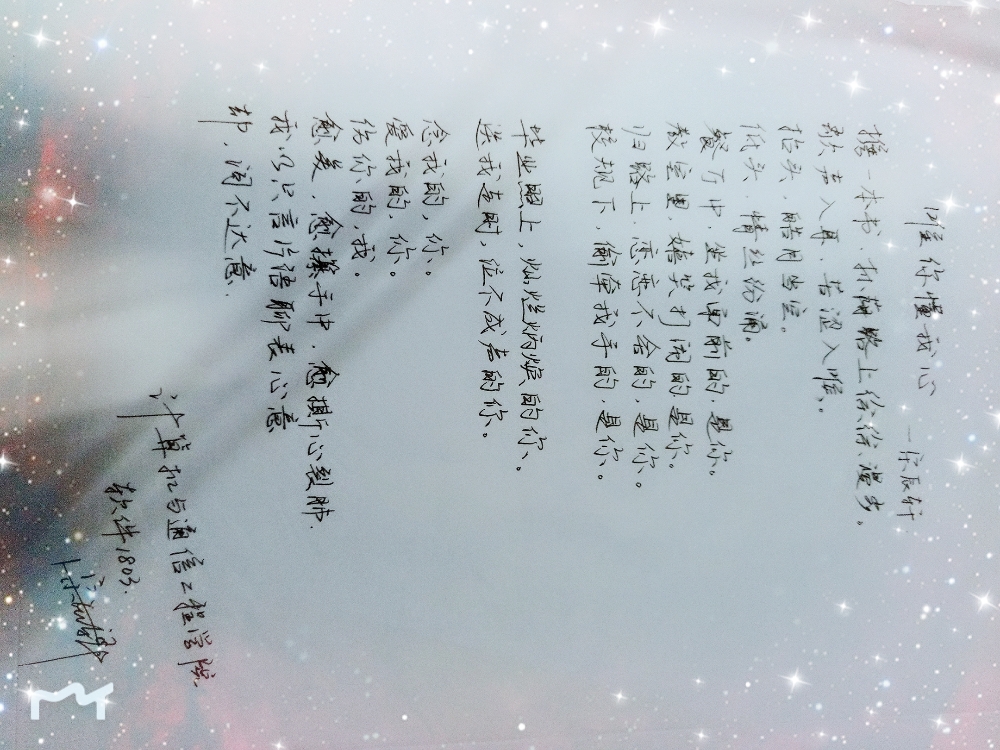 唯你懂我心
—宋辰轩
携一本书，林荫路上徐徐漫步。
秋声入耳，苦涩入喉。
抬头，皓月当空。
低头，情丝纷涌。
餐厅中，坐我面前的，是你。
教室里，嬉笑打闹的是你。
归路上，恋恋不舍的，是你。
校规下，偷牵我手的，是你。
毕业照上，灿烂炳焕的你。
送我走时，泣不成声的你。
念我的，你。
爱我的，你。
伤你的，我。
愈美，愈攥手中，愈撕心裂肺.
我以只言片语聊表心意
却，词不达意.
计算机与通信工程学院
软件1803.